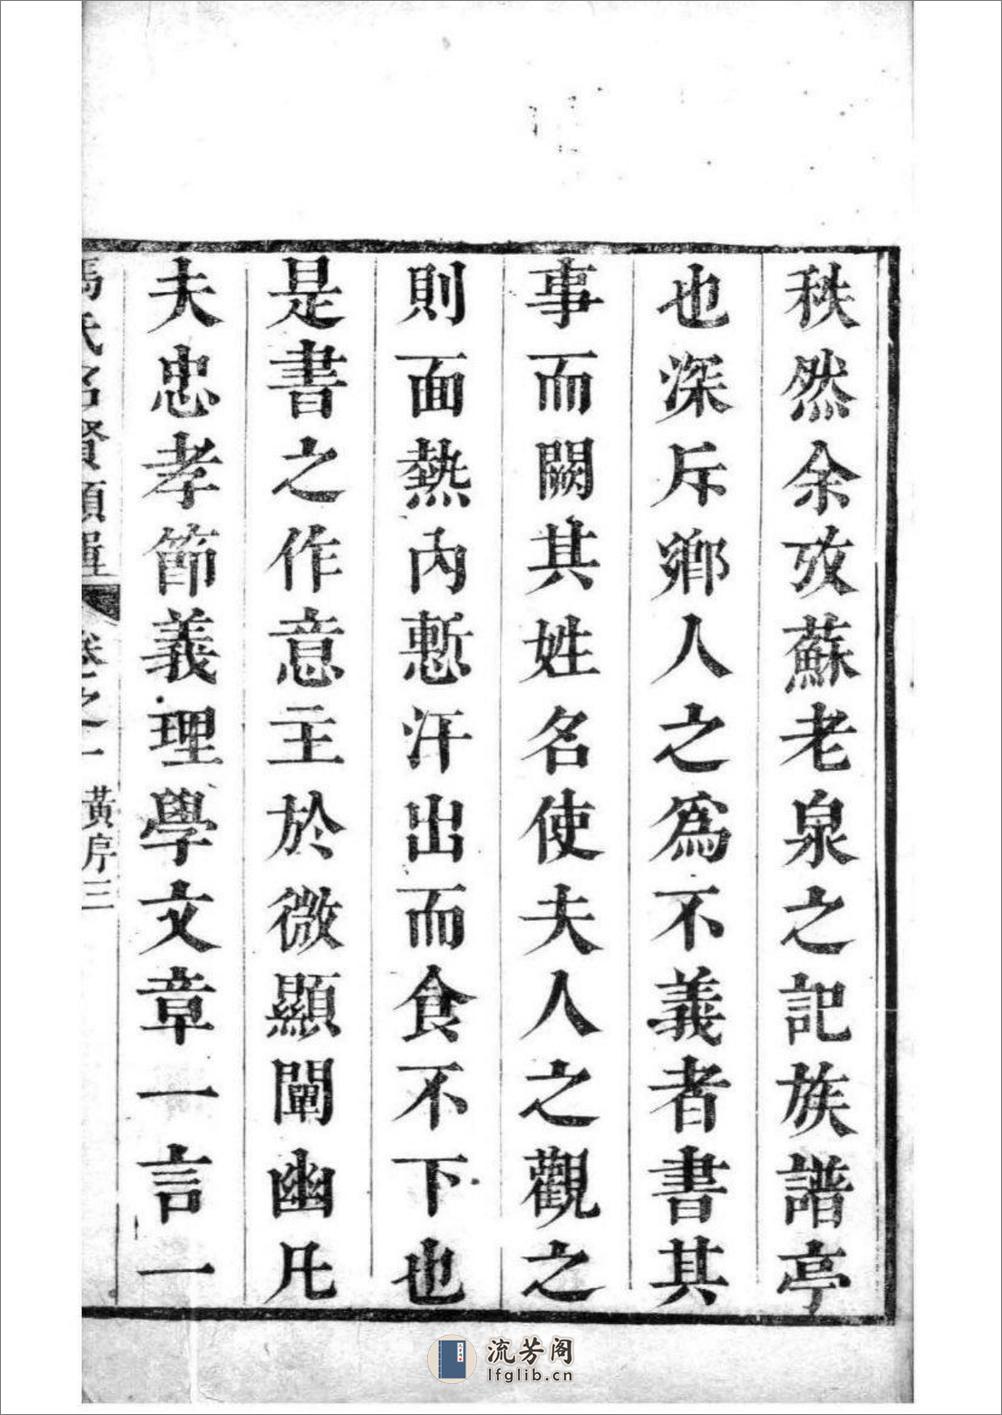 秩然余攷蘇老泉之記族譜亭
也深斥鄉人之為不義者書其
事而闕其姓名使夫人之觀之
則面熱內慙汗出而食不下也
是書之作意主於微顯闡幽凡
夫忠孝節義理學文章一言一
馮氏名賢類輯 卷之一 黃序三
流芳阁
lfglib.cn